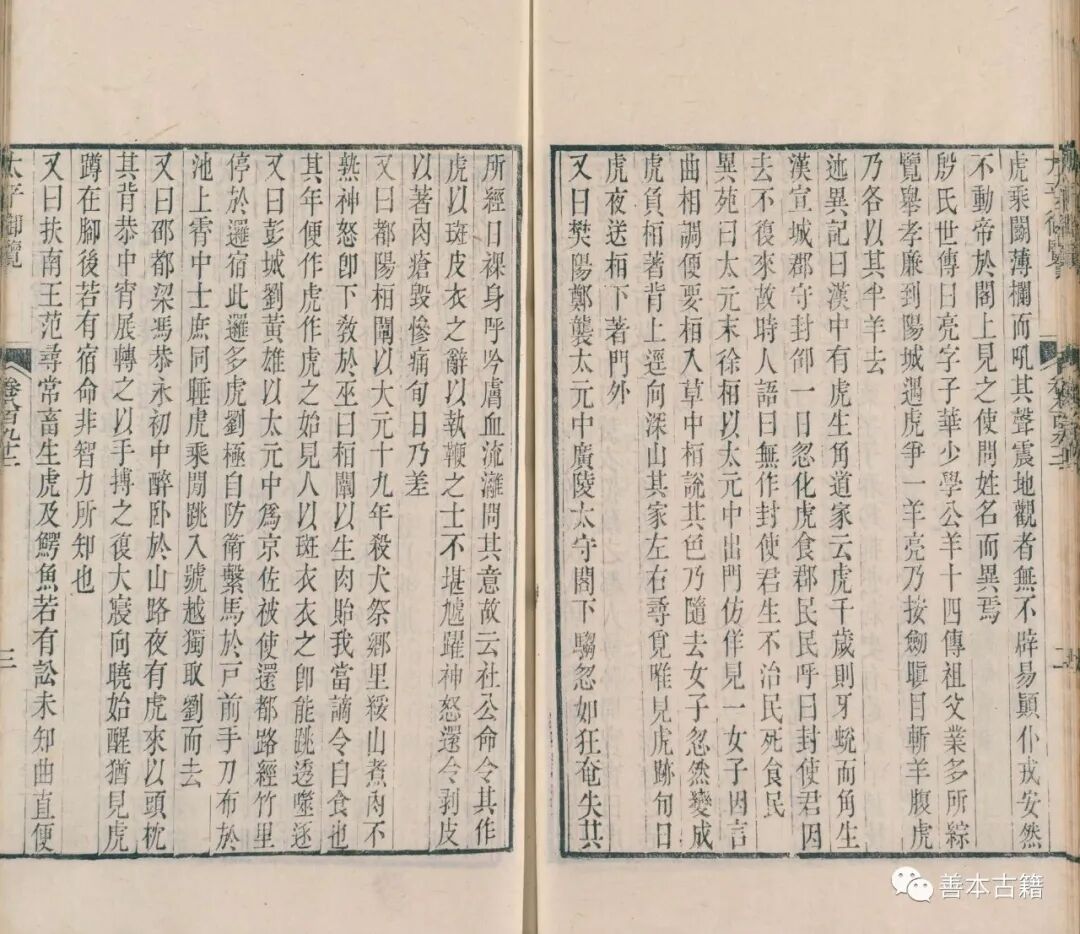 虎乘闞薄欄而吼其聲震地觀者無不辟易顚仆戎安然
不動帝於閣上見之使問姓名而異焉
殷氏世傳曰亮字子華少學公羊十四傳祖父業多所綜
覽舉孝廉到陽城遇虎爭一羊亮乃按劒瞋目斬羊腹虎
乃各以其半羊去
述異記曰漢中有虎生角道家云虎千歲則牙蛻而角生
漢宣城郡守封邵一日忽化虎食郡民民呼曰封使君因
去不復來故時人語曰無作封使君生不治民死食民
異苑曰太元末徐桓以太元中出門仿佯見一女子因言
曲相調便要桓入草中桓說其色乃隨去女子忽然變成
虎負桓著背上逕向深山其家左右尋覓唯見虎跡旬日
虎夜送桓下著門外
又曰樊陽鄭襲太元中廣陵太守閤下騶忽如狂奄失其
卷八百九十二
二
所經日裸身呼吟膚血流灕問其意故云社公命令其作
虎以斑皮衣之辭以執鞭之士不堪虓躍神怒還令剥皮
以著肉瘡毀慘痛旬日乃差
又曰都陽桓闡以大元十九年殺犬祭鄉里綏山煮肉不
熟神怒卽下敎於巫曰桓闡以生肉貽我當謫令自食也
其年便作虎作虎之始見人以斑衣衣之卽能跳透噬逐
又曰彭城劉黃雄以太元中爲京佐被使還都路經竹里
停於邏宿此邏多虎劉極自防衛繫馬於戸前手刀布於
池上霄中士庶同睡虎乘閒跳入號越獨取劉而去
又曰邵都梁馮恭永初中醉卧於山路夜有虎來以頭枕
其背恭中宵展轉之以手搏之復大寢向曉始醒猶見虎
蹲在腳後若有宿命非智力所知也
又曰扶南王范尋常畜生虎及鰐魚若有訟未知曲直便
太平御覽
卷八百九十二
三
善本古籍